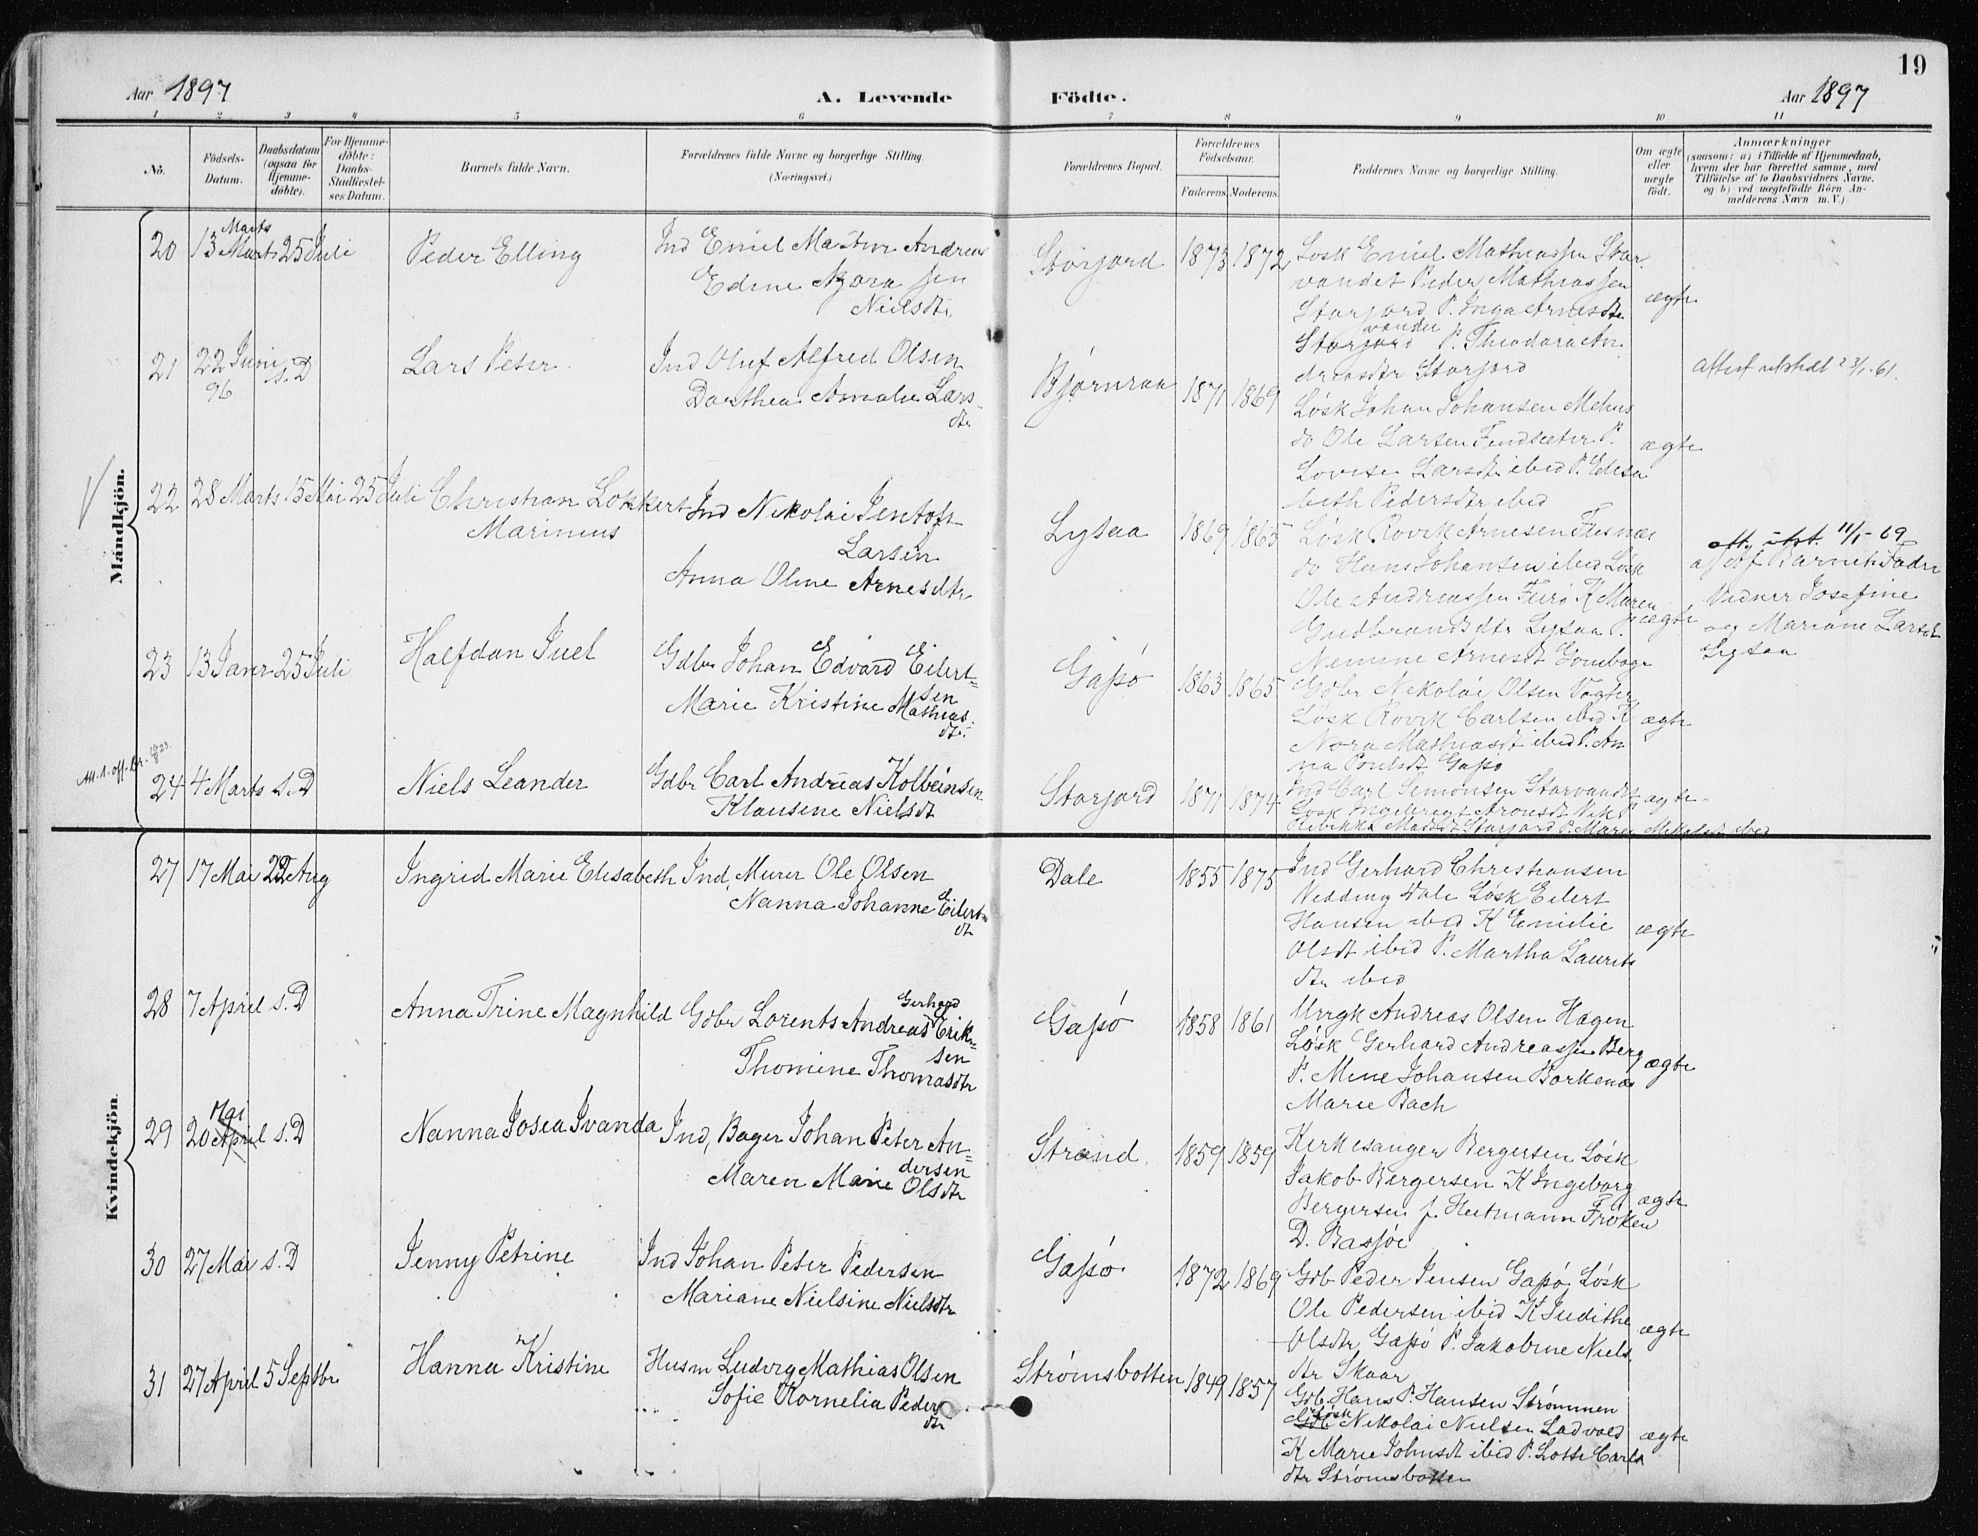 19
Aar 1897 A. Levende Födte. Aar 1897
1 2 3 4 5 6 7 8 9 10 11
No. Födsels-Datum. Daabsdatum (ogsaa for Hjemme-döbte). For Hjemme-döbte: Daabs-Stadfæstel-ses Datum. Barnets fulde Navn. Forældrenes fulde Navne og borgerlige Stilling. (Næringsvei.) Forældrenes Bopæl. Forældrenes Födselsaar. Faderens. Moderens. Faddernes Navne og borgerlige Stilling. Om ægte eller uægte födt. Anmærkninger (saasom: a) i Tilfælde af Hjemmedaab, hvem der har forrettet samme, med Tilföielse af to Daabsvidners Navne, og b) ved uægtefödte Börn An-melderens Navn m. V.)
Mandkjön.
20 13 Marts 25 Juli Peder Elling
Marts
Ind Emil Martin Andreas
sen
Nielsdtr
Storjord 1873 1872
Løsk Emil Mathiassen Stor
vandet Peder Mathiassen
Storjord P. Inga Arnesdtr
Storjord P. Theodora An
vandet
dreasdtr Storjord
ægte
21 22 Juni 96 s. D Lars Peter
Ind Oluf Alfred Olsen
Dorthea Amalie Lars
dtr
Bjørnraa 1871 1869
Løsk Johan Johansen Mehus
do Ole Larsen Findsæter P.
Lovise Larsdtr ibid P. Elisa
beth Pedersdtr ibid
ægte
Attest utstedt 23/1-61.
22 28 Marts 15 Mai 25 Juli Christian Lokkert
Marinius
Ind Nikolai Jentoft
Larsen
Anna Oline Arnesdtr
Lysaa 1869 1865
Løsk Rovik Arnesen Flesnæs
do Hans Johansen ibid Løsk
Ole Andreassen K Maren
Gudbrandsdtr Lysaa P.
Arnesdt
ægte
11/1-69
af Barnets Fader
Vidner Josefine
og Mariane Larsdt
Lysaa
23 13 Janr 25 Juli Halfdan Juel
Gdbr Johan Edvard Eilert=
sen
Marie Kristine Mathias
dtr.
Gapø 1863 1865
Gdbr Nikolai Olsen
Løsk Rovik Carlsen ibid K
Nora Mathiasdt ibid P. An
na Poulsdt Gapø
ægte
24 4 Marts s. D Niels Leander
Gdbr Carl Andreas Kolbeinsen
Klausine Nielsdt
Storjord 1871 1874
Ind Carl Simonsen Storvandet
Løsk Ingebregt Aronsdt Vik P
Rebikka Madsdt Storjord P. Maren Mikalsdt ibid
ægte
Kvindekjön.
27 17 Mai 22 Aug Ingrid Marie Elisabeth
Ind, Murer Ole Olsen
Nanna Johanne Eilert=
dtr
Dale 1855 1875
Ind Gerhard Christiansen
Dale Løsk Eilert
Hansen ibid K Emilie
Olsdt ibid P. Martha Laurits
dtr ibid
ægte
28 7 April s. D Anna Trine Magnhild
Gdbr Lorents Andreas Erik=
Gerhard
sen
Thomine Thomasdtr
Gapø 1858 1861
Ungk Andreas Olsen Hagen
Løsk Gerhard Andreassen Berg
P. Mine Johansen Borkenæs
Marie Bach
ægte
29 20 April s. D Nanna Josea Ivanda
Mai
Ind, Bager Johan Peter An=
dersen
Maren Marie Olsdtr
Strand 1859 1859
Kirkesanger Bergersen Løsk
Jakob Bergersen K Ingeborg
Bergersen f. Heitmann Frøken
D. Bassøe
ægte
30 27 Mai s. D Jenny Petrine
Ind Johan Peter Pedersen
Mariane Nielsine Nielsdtr
Gapø 1872 1869
Gdb Peder Jensen Gapø, Løsk
Ole Pedersen ibid K Judithe
Olsdtr Gapø P. Jakobine Niels
dtr Skaar
ægte
31 27 April 5 Septbr Hanna Kristine
Husm Ludvig Mathias Olsen
Sofie Kornelia Peders
dtr
Strømsbotten 1849 1857
Gdb. Hans P. Hansen Strømmen
Gdb Nikolai Nielsen Ladvold
Løsk
K Marie Johnsdt ibid P. Lotte Carls
dtr Strømsbotten
ægte